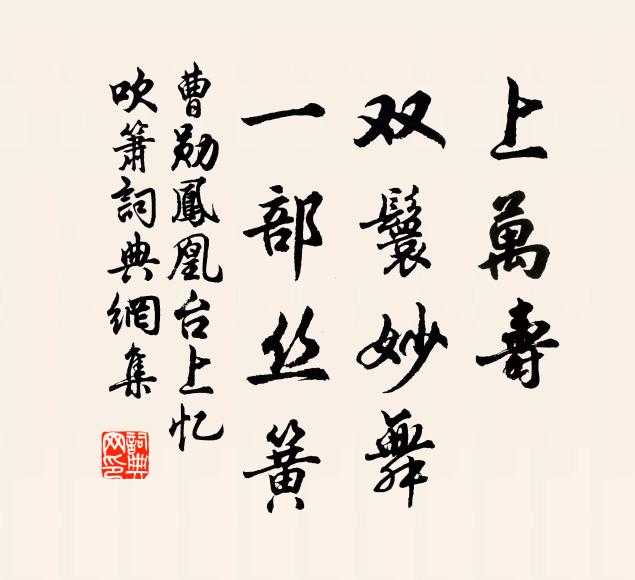 上萬壽
双鬟妙舞
一部丝簧
曹勋鳳凰台上忆
吹箫詞典網集
詞典
网印